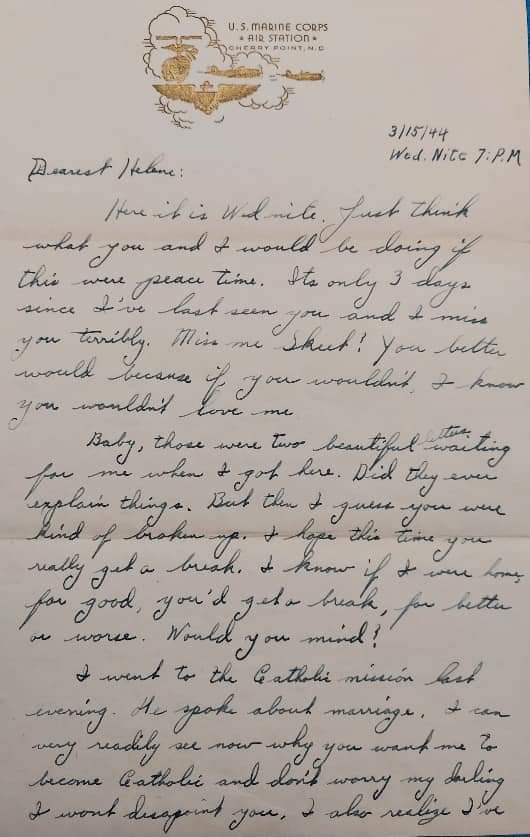 U.S. MARINE CORPS
★ AIR STATION ★
CHERRY POINT, N.C
3/15/44
Wed. Nite 7:P.M
Dearest Helene:
Here it is Wed nite. Just think
what you and I would be doing if
this were peace time. Its only 3 days
since I've last seen you and I miss
you terribly. Miss me Skeet! You better
would because if you wouldn't, I know
you wouldn't love me
Baby, those were two beautiful letters waiting
for me when I got here. Did they ever
explain things. But then I guess you were
kind of broken up. I hope this time you
really get a break. I know if I were home,
for good, you'd get a break, for better
or worse. Would you mind?
I went to the Catholic mission last
evening. He spoke about marriage. I can
very readily see now why you want me to
become Catholic and don't worry my darling
I wont disapoint you, I also realize I've